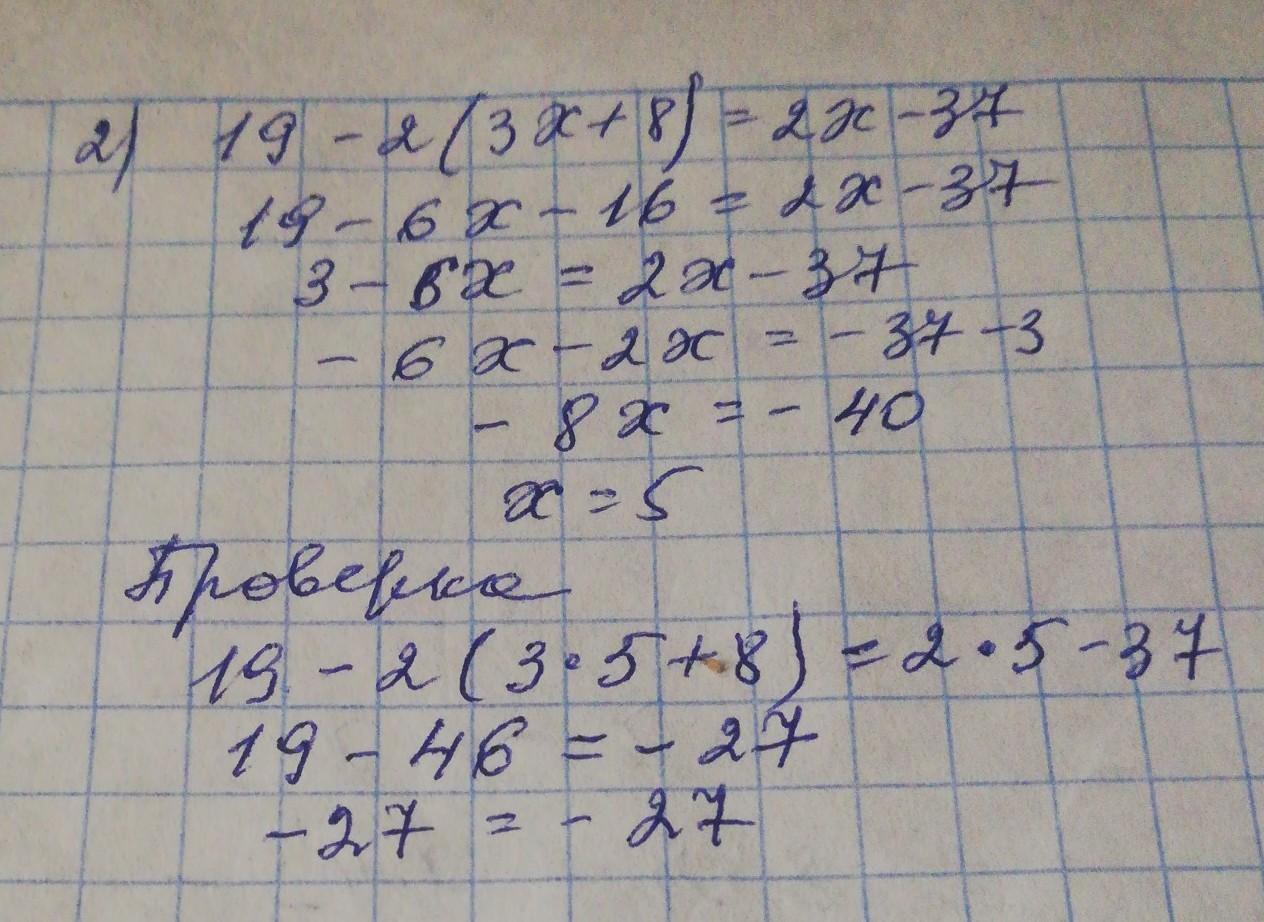 2) 19 - 2(3x+8) = 2x - 37
19 - 6x - 16 = 2x - 37
3 - 6x = 2x - 37
- 6x - 2x = - 37 - 3
- 8x = - 40
x = 5
Проверка
19 - 2(3·5+8) = 2·5 - 37
19 - 46 = - 27
- 27 = - 27